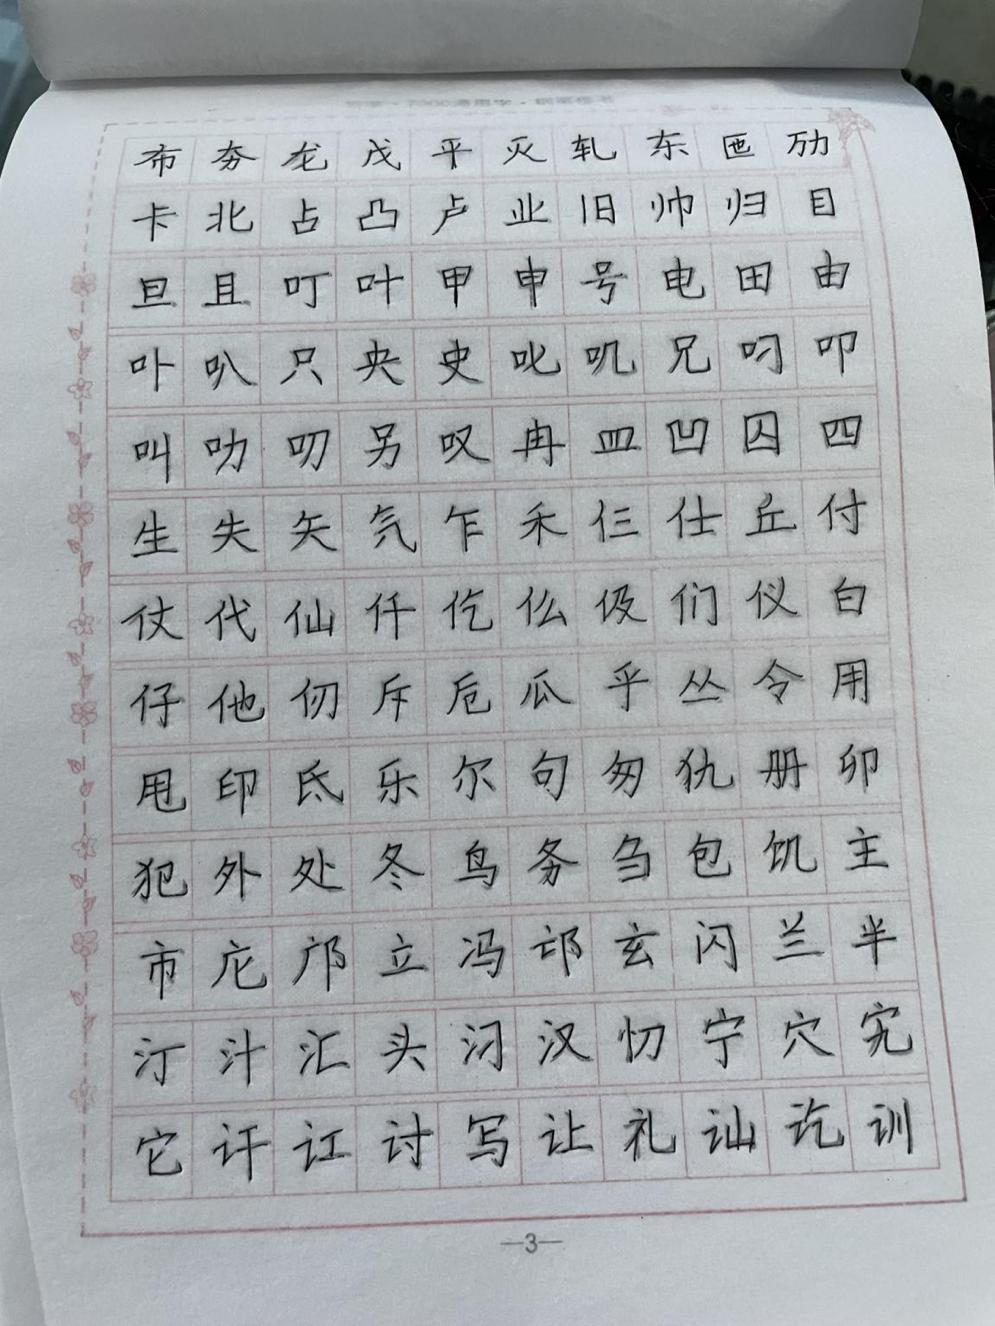 布夯龙戊平灭轧东匜劢
卡北占凸卢业旧帅归目
旦且叮叶甲申号电田由
卟叭只央史叱叽兄叼叩
叫叻叨另叹冉皿凹囚四
生失矢氕乍禾仨仕丘付
仗代仙仟仡仫伋们仪白
仔他仞斥卮瓜乎丛令用
甩印氐乐尔句匆犰册卯
犯外处冬鸟务刍包饥主
市庀邝立冯邙玄闪兰半
汀汁汇头汈汉忉宁穴宄
它讦讧讨写让礼讪讫训
—3—